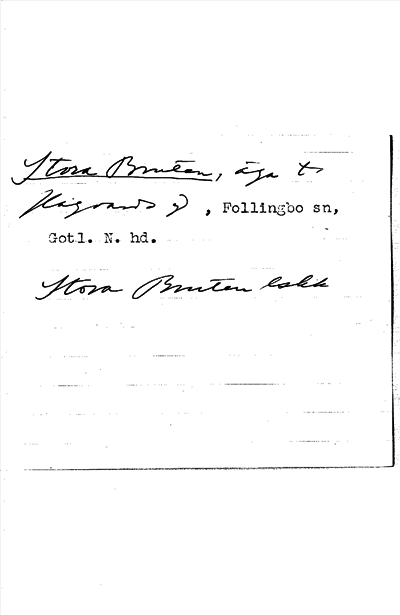 Stora Bruten, äga t
Hägvards          , Follingbo sn,
Gotl. N. hd.
Stora Bruten lskk